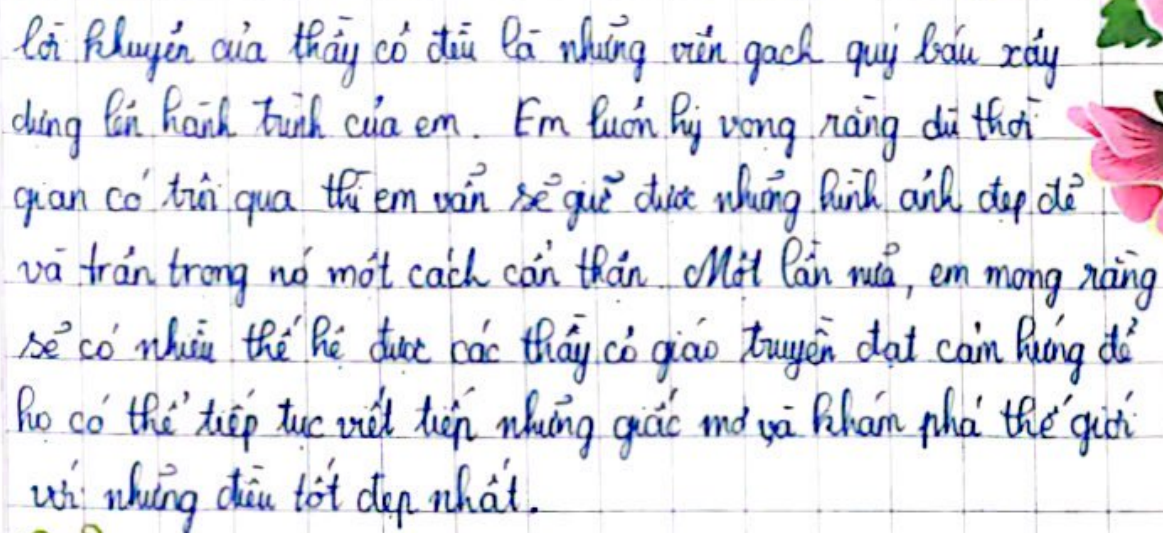 lời khuyên của thầy cô đều là những viên gạch quý báu xây
dựng lên hành trình của em. Em luôn hy vọng rằng dù thời
gian có trôi qua thì em vẫn sẽ giữ được những hình ảnh đẹp đẽ
và trân trọng nó một cách cẩn thận. Một lần nữa, em mong rằng
sẽ có nhiều thế hệ được các thầy cô giáo truyền đạt cảm hứng để
họ có thể tiếp tục viết tiếp những giấc mơ và khám phá thế giới
với những điều tốt đẹp nhất.